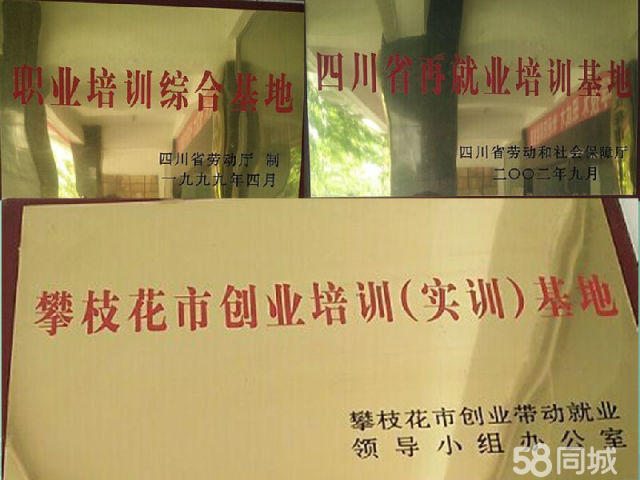 职业培训综合基地
四川省劳动厅 制
一九九九年四月
四川省再就业培训基地
四川省劳动和社会保障厅
二〇〇二年九月
攀枝花市创业培训(实训)基地
攀枝花市创业带动就业
领导小组办公室
58同城